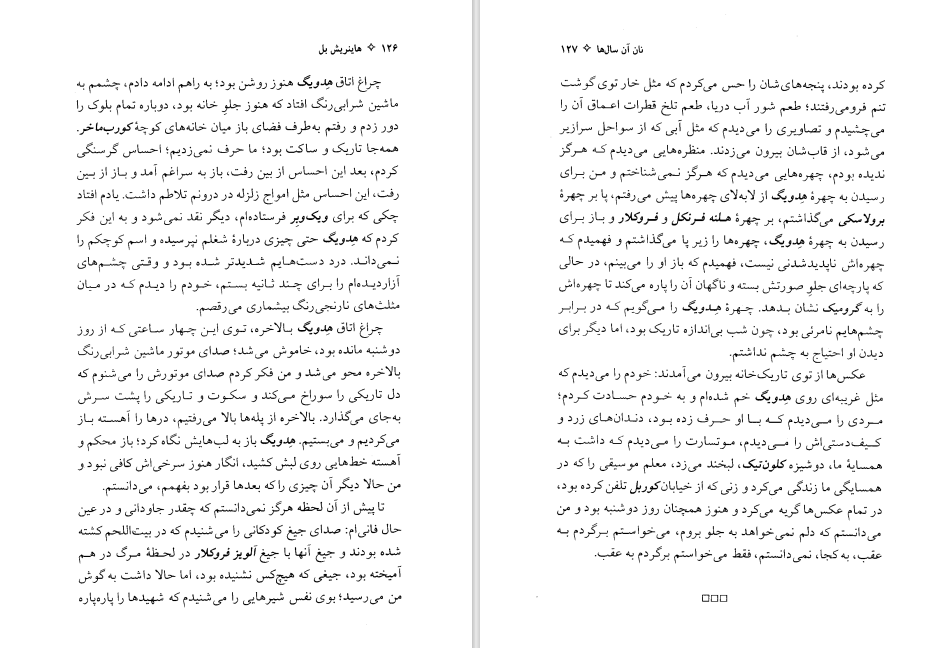 ۱۲۶ ✧ هاینریش بل
چراغ اتاق هِدویگ هنوز روشن بود؛ به راهم ادامه دادم، چشمم به
ماشین شرابی‌رنگ افتاد که هنوز جلوِ خانه بود، دوباره تمام بلوک را
دور زدم و رفتم به‌طرف فضای باز میان خانه‌های کوچهٔ کورب‌ماخر.
همه‌جا تاریک و ساکت بود؛ ما حرف نمی‌زدیم؛ احساس گرسنگی
کردم، بعد این احساس از بین رفت، باز به سراغم آمد و باز از بین
رفت، این احساس مثل امواج زلزله در درونم تلاطم داشت. یادم افتاد
چکی که برای ویک‌وِبِر فرستاده‌ام، دیگر نقد نمی‌شود و به این فکر
کردم که هِدویگ حتی چیزی دربارهٔ شغلم نپرسیده و اسم کوچکم را
نمی‌داند. درد دست‌هایم شدیدتر شده بود و وقتی چشم‌های
آزاردیده‌ام را برای چند ثانیه بستم، خودم را دیدم که در میان
مثلث‌های نارنجی‌رنگ بیشماری می‌رقصم.
چراغ اتاق هِدویگ بالاخره، توی این چهار ساعتی که از روز
دوشنبه مانده بود، خاموش می‌شد؛ صدای موتور ماشین شرابی‌رنگ
بالاخره محو می‌شد و من فکر کردم صدای موتورش را می‌شنوم که
دل تاریکی را سوراخ می‌کند و سکوت و تاریکی را پشت سرش
به‌جای می‌گذارد. بالاخره از پله‌ها بالا می‌رفتیم، درها را آهسته باز
می‌کردیم و می‌بستیم. هِدویگ باز به لب‌هایش نگاه کرد؛ باز محکم و
آهسته خط‌هایی روی لبش کشید، انگار هنوز سرخی‌اش کافی نبود و
من حالا دیگر آن چیزی را که بعدها قرار بود بفهمم، می‌دانستم.
تا پیش از آن لحظه هرگز نمی‌دانستم که چقدر جاودانی و در عین
حال فانی‌ام: صدای جیغ کودکانی را می‌شنیدم که در بیت‌اللحم کشته
شده بودند و جیغ آنها با جیغ آلویز فروکلار در لحظهٔ مرگ در هم
آمیخته بود، جیغی که هیچ‌کس نشنیده بود، اما حالا داشت به گوش
من می‌رسید؛ بوی نفس شیرهایی را می‌شنیدم که شهیدها را پاره‌پاره
نان آن سال‌ها ✧ ۱۲۷
کرده بودند، پنجه‌های‌شان را حس می‌کردم که مثل خار توی گوشت
تنم فرومی‌رفتند؛ طعم شور آب دریا، طعم تلخ قطرات اعماق آن را
می‌چشیدم و تصاویری را می‌دیدم که مثل آبی که از سواحل سرازیر
می‌شود، از قاب‌شان بیرون می‌زدند. منظره‌هایی می‌دیدم که هرگز
ندیده بودم، چهره‌هایی می‌دیدم که هرگز نمی‌شناختم و من برای
رسیدن به چهرهٔ هِدویگ از لابه‌لای چهره‌ها پیش می‌رفتم، پا بر چهرهٔ
برولاسکی می‌گذاشتم، بر چهرهٔ هلنه فرنکل و فروکلار و باز برای
رسیدن به چهرهٔ هِدویگ، چهره‌ها را زیر پا می‌گذاشتم و فهمیدم که
چهره‌اش ناپدیدشدنی نیست، فهمیدم که باز او را می‌بینم، در حالی
که پارچه‌ای جلوِ صورتش بسته و ناگهان آن را پاره می‌کند تا چهره‌اش
را به گرومیک نشان بدهد. چهرهٔ هِدویگ را می‌گویم که در برابر
چشم‌هایم نامرئی بود، چون شب بی‌اندازه تاریک بود، اما دیگر برای
دیدن او احتیاج به چشم نداشتم.
عکس‌ها از توی تاریک‌خانه بیرون می‌آمدند: خودم را می‌دیدم که
مثل غریبه‌ای روی هِدویگ خم شده‌ام و به خودم حسادت کردم؛
مردی را می‌دیدم که با او حرف زده بود، دندان‌های زرد و
کیف‌دستی‌اش را می‌دیدم، موتسارت را می‌دیدم که داشت به
همسایهٔ ما، دوشیزه کلون‌تیک، لبخند می‌زد، معلم موسیقی را که در
همسایگی ما زندگی می‌کرد و زنی که از خیابان کوربل تلفن کرده بود،
در تمام عکس‌ها گریه می‌کرد و هنوز همچنان روز دوشنبه بود و من
می‌دانستم که دلم نمی‌خواهد به جلو بروم، می‌خواستم برگردم به
عقب، به کجا، نمی‌دانستم، فقط می‌خواستم برگردم به عقب.
□□□